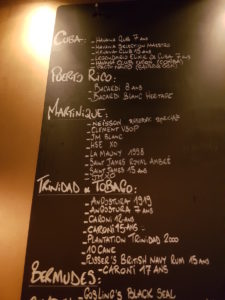 CUBA:
- HAVANA CLUB 7 ANS
- HAVANA SELECCION MAESTRO
- HAVANA CLUB 15 ANS
- LEGENDARIO ELIXIR DE CUBA 7 ANS
PUERTO RICO:
- BACARDI 8 ANS
- BACARDI BLANC HERITAGE
MARTINIQUE:
- NEISSON RESERVE SPECIALE
- CLEMENT VSOP
- JM BLANC
- HSE XO
- LA MAUNY 1998
- SAINT JAMES ROYAL AMBRÉ
- SAINT JAMES 15 ANS
- JM XO
TRINIDAD & TOBAGO:
- ANGOSTURA 1919
- ANGOSTURA 7 ANS
- CARONI 12 ANS
- CARONI 15 ANS
- PLANTATION TRINIDAD 2000
- 10 CANE
- PUSSER'S BRITISH NAVY RUM 15 ANS
- CARONI 17 ANS
BERMUDES:
- GOSLING'S BLACK SEAL